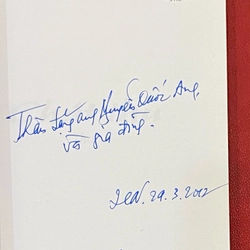 Thân tặng ông Nguyễn Quốc Ang,
và gia đình.
29.3.2002